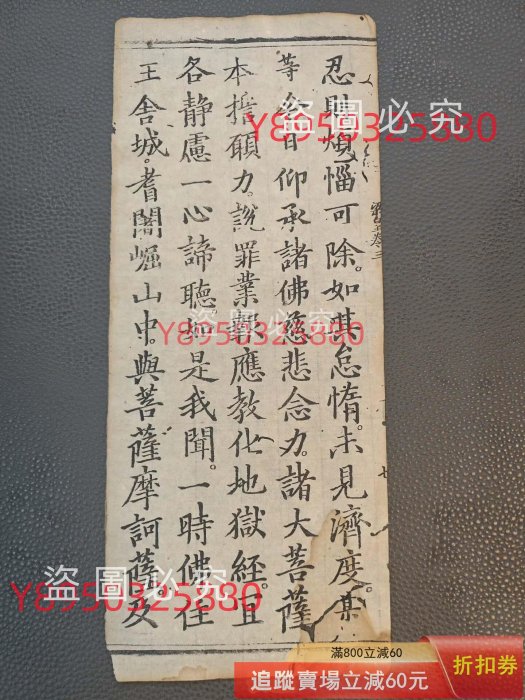 忍則煩惱可除。如其怠惰。未見濟度。某
等今日仰承諸佛慈悲念力。諸大菩薩
本誓願力。說罪業報應教化地獄經。宜
各靜慮一心諦聽。如是我聞。一時佛住
王舍城。耆闍崛山中。與菩薩摩訶薩。及
盜圖必究
Y8950325880
盜圖必究
Y8950325880
盜圖必究
Y8950325880
滿800立減60
追蹤賣場立減60元
折扣券